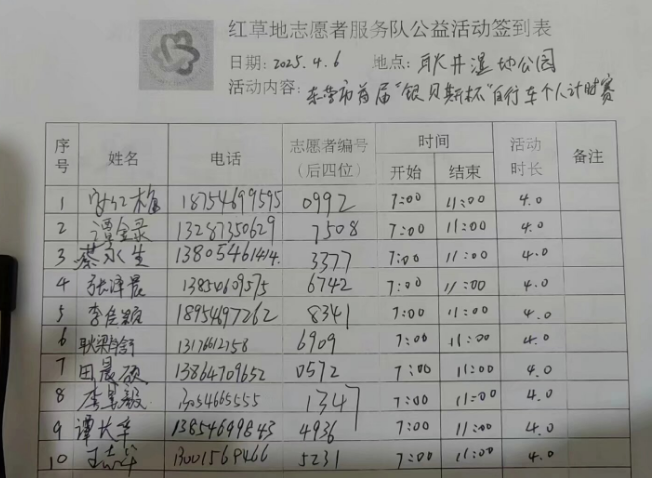 红草地志愿者服务队公益活动签到表
日期: 2025.4.6 地点: 耿井湿地公园
活动内容: 东营市首届"银贝斯杯"自行车个人计时赛
序号 姓名 电话 志愿者编号(后四位) 时间 开始 结束 活动时长 备注
1 18754699595 0992 7:00 11:00 4.0
2 谭金录 13287350629 7508 7:00 11:00 4.0
3 蔡永生 13805461414. 3377 7:00 11:00 4.0
4 张泽晨 13850609575 6742 7:00 11:00 4.0
5 18954697262 8341 7:00 11:00 4.0
6 13176612758 6909 7:00 11:00 4.0
7 田晨硕 13864709652 0572 7:00 11:00 4.0
8 1347 7:00 11:00 4.0
9 谭大华 13854699843 4936 7:00 11:00 4.0
10 王志华 13001569466 5231 7:00 11:00 4.0